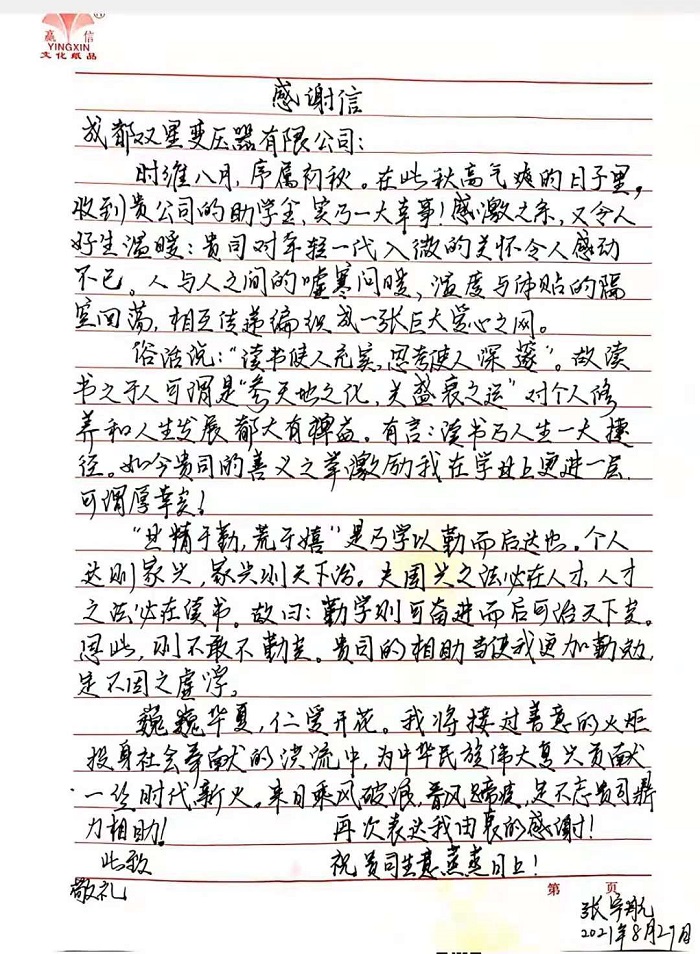 赢 信
YINGXIN
文化纸品
感谢信
成都双星变压器有限公司：
时维八月，序属初秋。在此秋高气爽的日子里，
收到贵公司的助学金，实乃一大幸事！感激之余，又令人
好生温暖：贵司对年轻一代入微的关怀令人感动
不已。人与人之间的嘘寒问暖，温度与体贴的隔
空回荡，相互传递编织成一张巨大爱心之网。
俗话说：“读书使人充实，思考使人深邃”。故读
书之于人可谓是“参天地之化，关盛衰之运”对个人修
养和人生发展都大有裨益。有言：读书乃人生一大捷
径。如今贵司的善义之举激励我在学业上更进一层，
可谓厚幸矣！
“业精于勤，荒于嬉”是乃学以勤而后达也。个人
达则家兴，家兴则天下治。夫国兴之法必在人才，人才
之法必在读书。故曰：勤学则可奋进而后可治天下矣。
因此，则不敢不勤矣。贵司的相助当使我更加勤勉，
定不因之虚浮。
巍巍华夏，仁爱开花。我将接过善意的火炬
投身社会奉献的洪流中，为中华民族伟大复兴贡献
一丝时代新火。来日乘风破浪，春风马蹄疾，定不忘贵司鼎
力相助！ 再次表达我由衷的感谢！
此致 祝贵司生意蒸蒸日上！
敬礼
第 页
张宇航
2021年8月27日